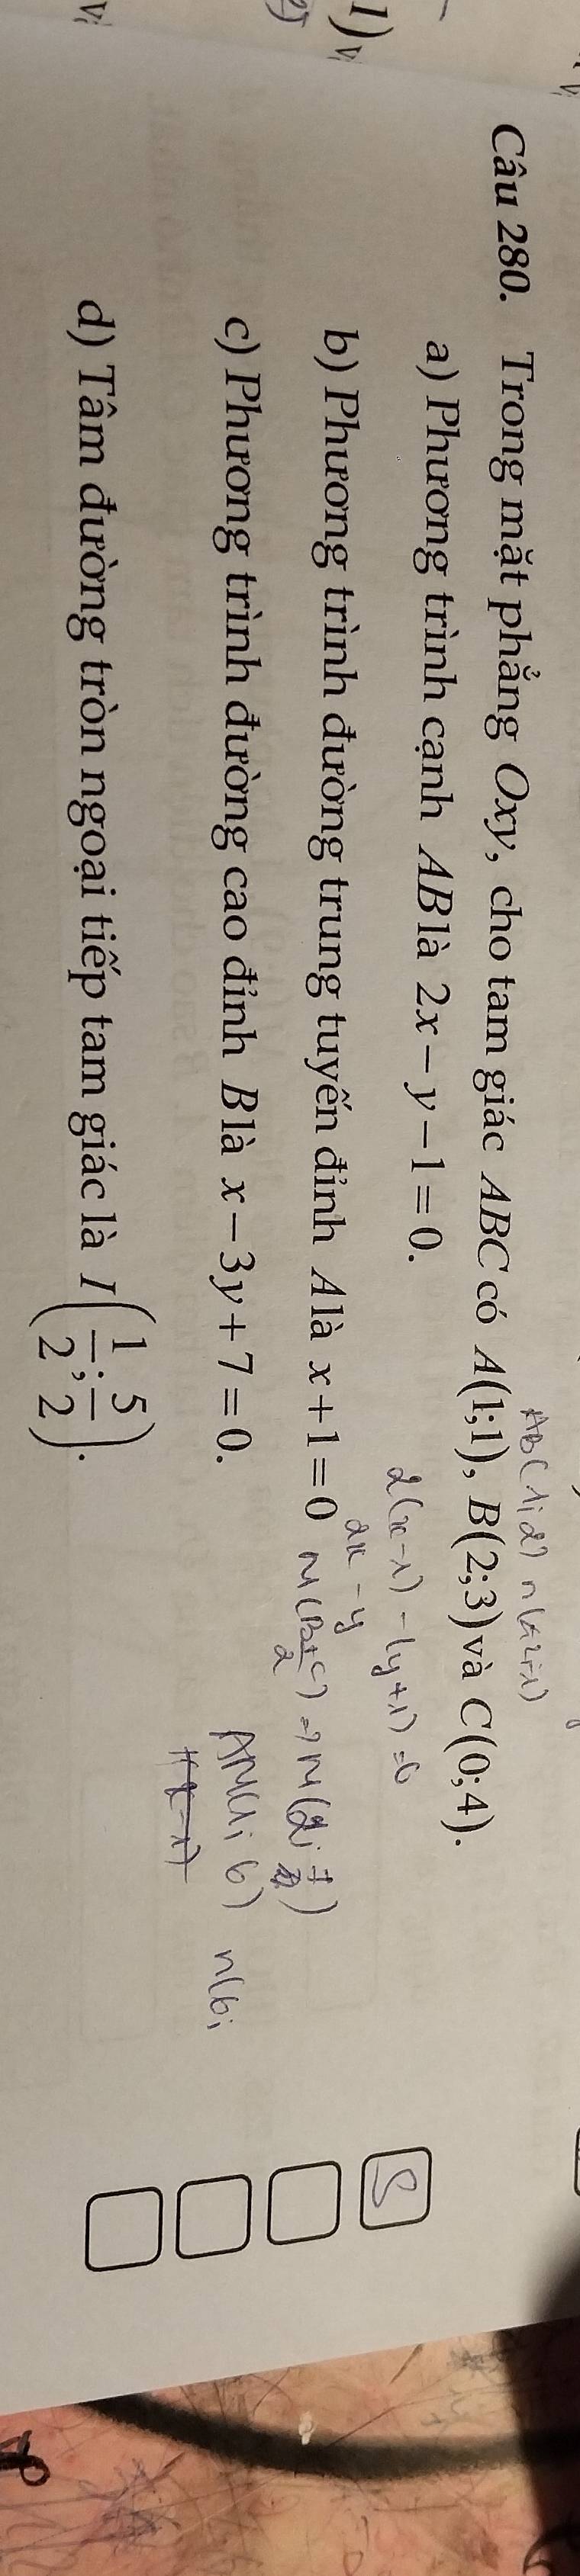 1)
Câu 280. Trong mặt phẳng Oxy, cho tam giác ABC có A(1;1), B(2;3) và C(0;4).
AB(1;2) n(2;-1)
a) Phương trình cạnh AB là 2x − y − 1 = 0.
2(x-1) - (y+1) = 0
2x - y
S
b) Phương trình đường trung tuyến đỉnh A là x + 1 = 0
c) Phương trình đường cao đỉnh B là x − 3y + 7 = 0.
AM(1; 6) n(6;
d) Tâm đường tròn ngoại tiếp tam giác là I(1/2; 5/2).